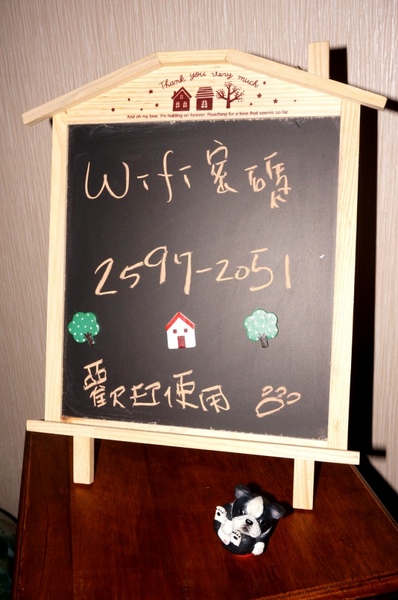 Thank you very much
And on my love. I'm building on forever. Reaching for a love that seems so far
Wifi密碼
2597-2051
歡迎使用